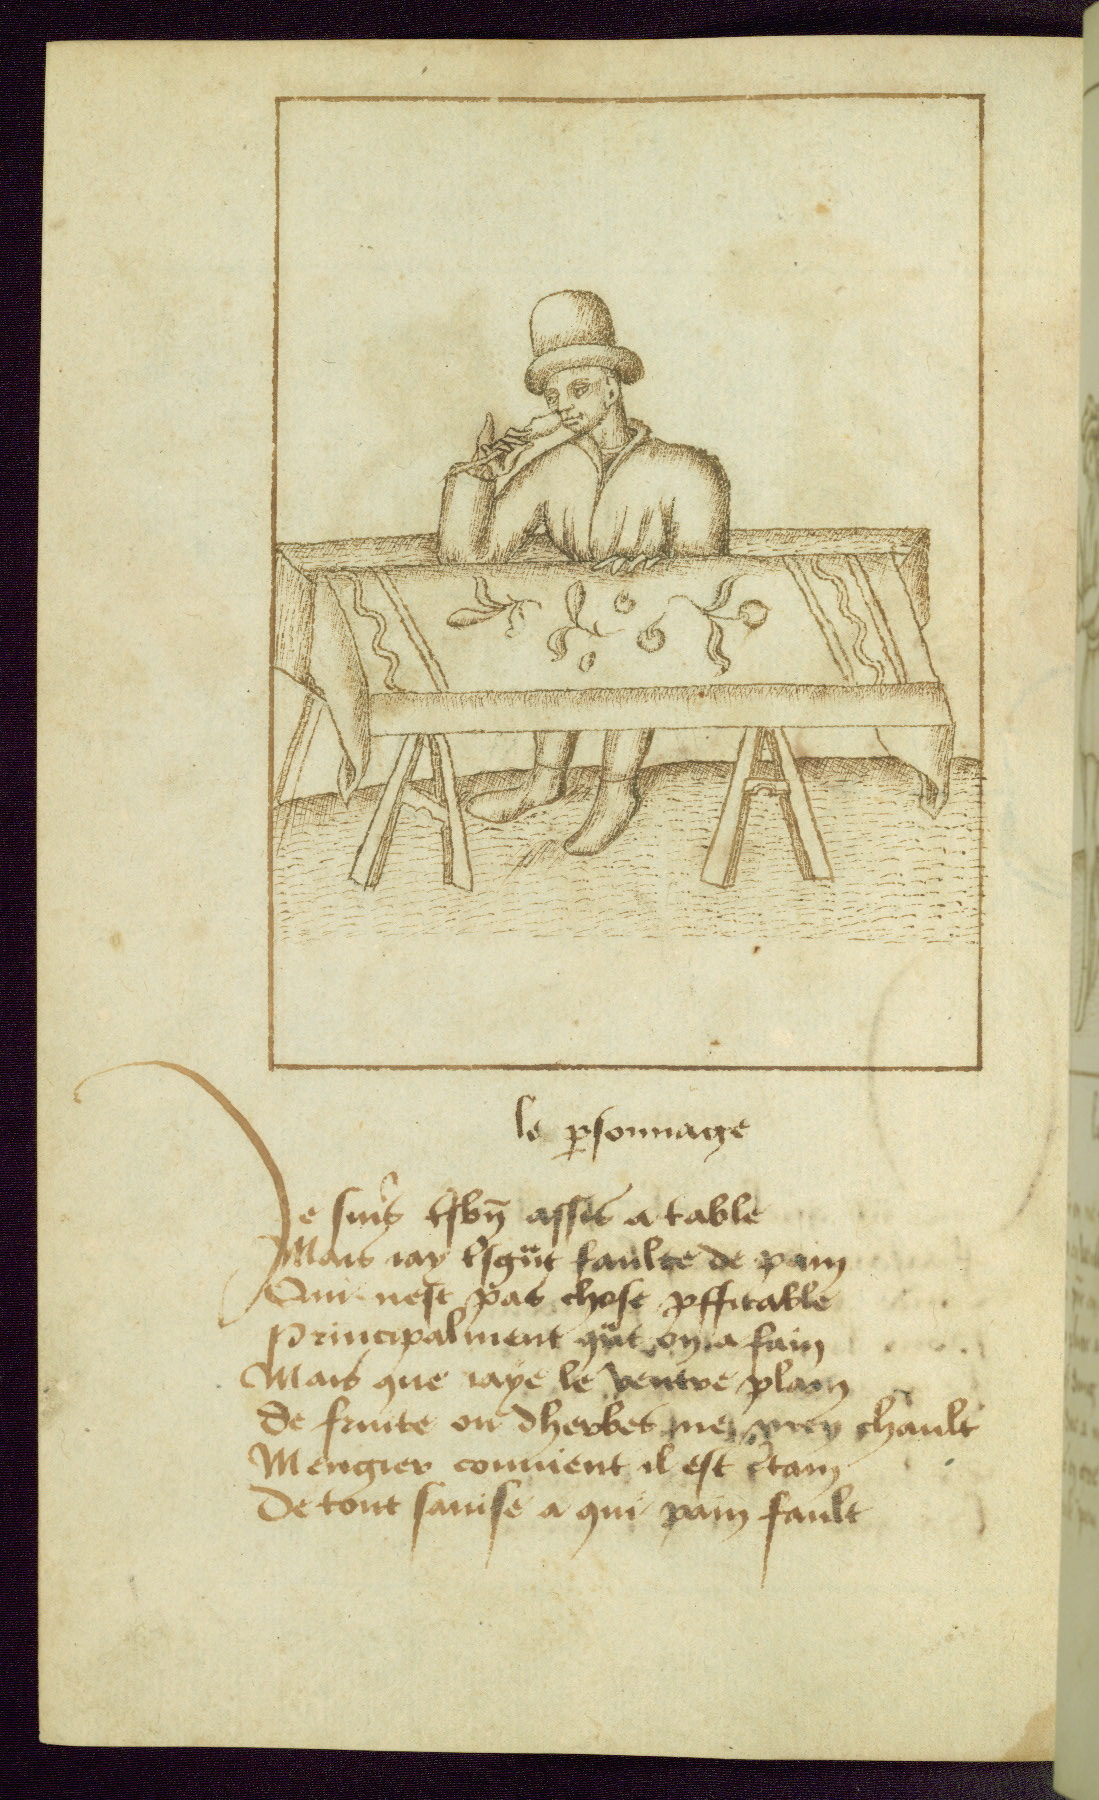 le psonnage
Je suis tsbn̄ assis a table
Mais iay tsgūt faulte de pain
Qui nest pas chose pffitable
Principalment qūt on a fain
Mais que iaye le ventre plain
De fruite ou dherbes ne men chault
Mengier conuient il est ctain
De tout sauise a qui pain fault